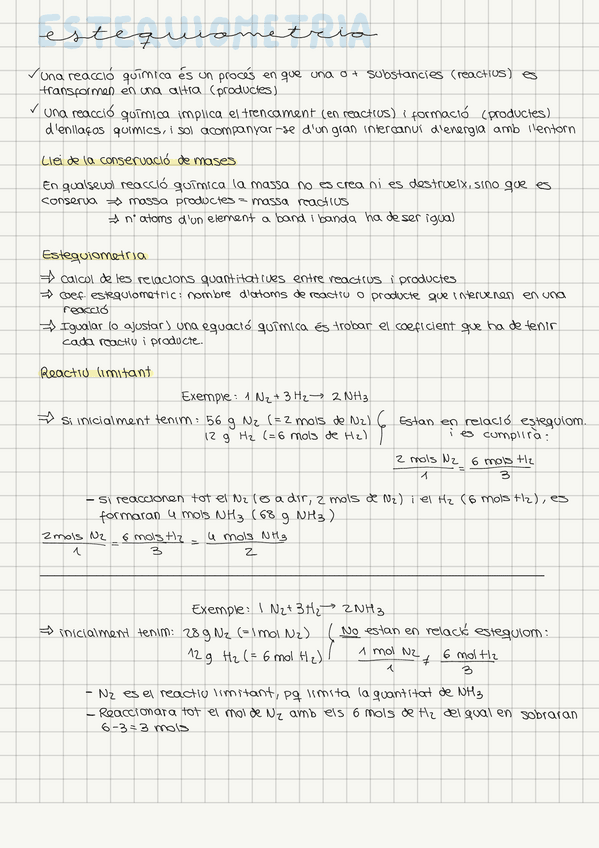 ESTEQUIOMETRIA
estequiometria
✓ Una reacció química és un procés en que una o + substancies (reactius) es
transformen en una altra (productes)
✓ Una reacció química implica el trencament (en reactius) i formació (productes)
d'enllaços quimics, i sol acompanyar-se d'un gran intercanvi d'energia amb l'entorn
Llei de la conservació de mases
En qualsevol reacció química la massa no es crea ni es destrueix, sino que es
conserva ⇒ massa productes = massa reactius
⇒ n° atoms d'un element a band i banda ha de ser igual
Estequiometria
⇒ calcol de les relacions quantitatives entre reactius i productes
⇒ coef estequiometric: nombre d'atoms de reactiu o producte que intervenen en una
reacció
⇒ Igualar (o ajustar) una equació química és trobar el coeficient que ha de tenir
cada reactiu i producte.
Reactiu limitant
Exemple: 1 N₂ + 3 H₂ → 2 NH₃
⇒ Si inicialment tenim: 56 g N₂ (= 2 mols de N₂) Estan en relació estequiom.
12 g H₂ (= 6 mols de H₂) i es cumplirà:
2 mols N₂/1 = 6 mols H₂/3
- Si reaccionen tot el N₂ (es a dir, 2 mols de N₂) i el H₂ (6 mols H₂), es
formaran 4 mols NH₃ (68 g NH₃)
2 mols N₂/1 = 6 mols H₂/3 = 4 mols NH₃/2
Exemple: 1 N₂ + 3 H₂ → 2 NH₃
⇒ inicialment tenim: 28 g N₂ (= 1 mol N₂) No estan en relació estequiom:
12 g H₂ (= 6 mol H₂) 1 mol N₂/1 ≠ 6 mol H₂/3
- N₂ es el reactiu limitant, pq limita la quantitat de NH₃
- Reaccionara tot el mol de N₂ amb els 6 mols de H₂ del qual en sobraran
6-3 = 3 mols